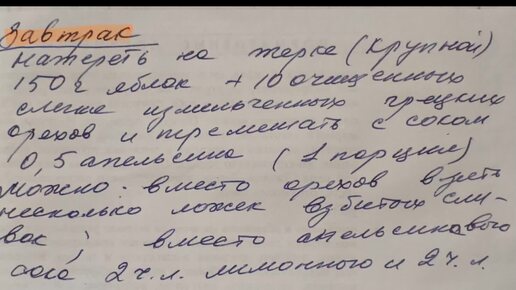 Завтрак
Натереть на терке (крупной)
150 г яблок + 10 очищенных
слегка измельченных грецких
орехов и перемешать с соком
0,5 апельсина (1 порция)
Можно вместо орехов взять
несколько ложек взбитых сли-
вок; вместо апельсинового
сока 2 ч.л. лимонного и 2 ч.л.